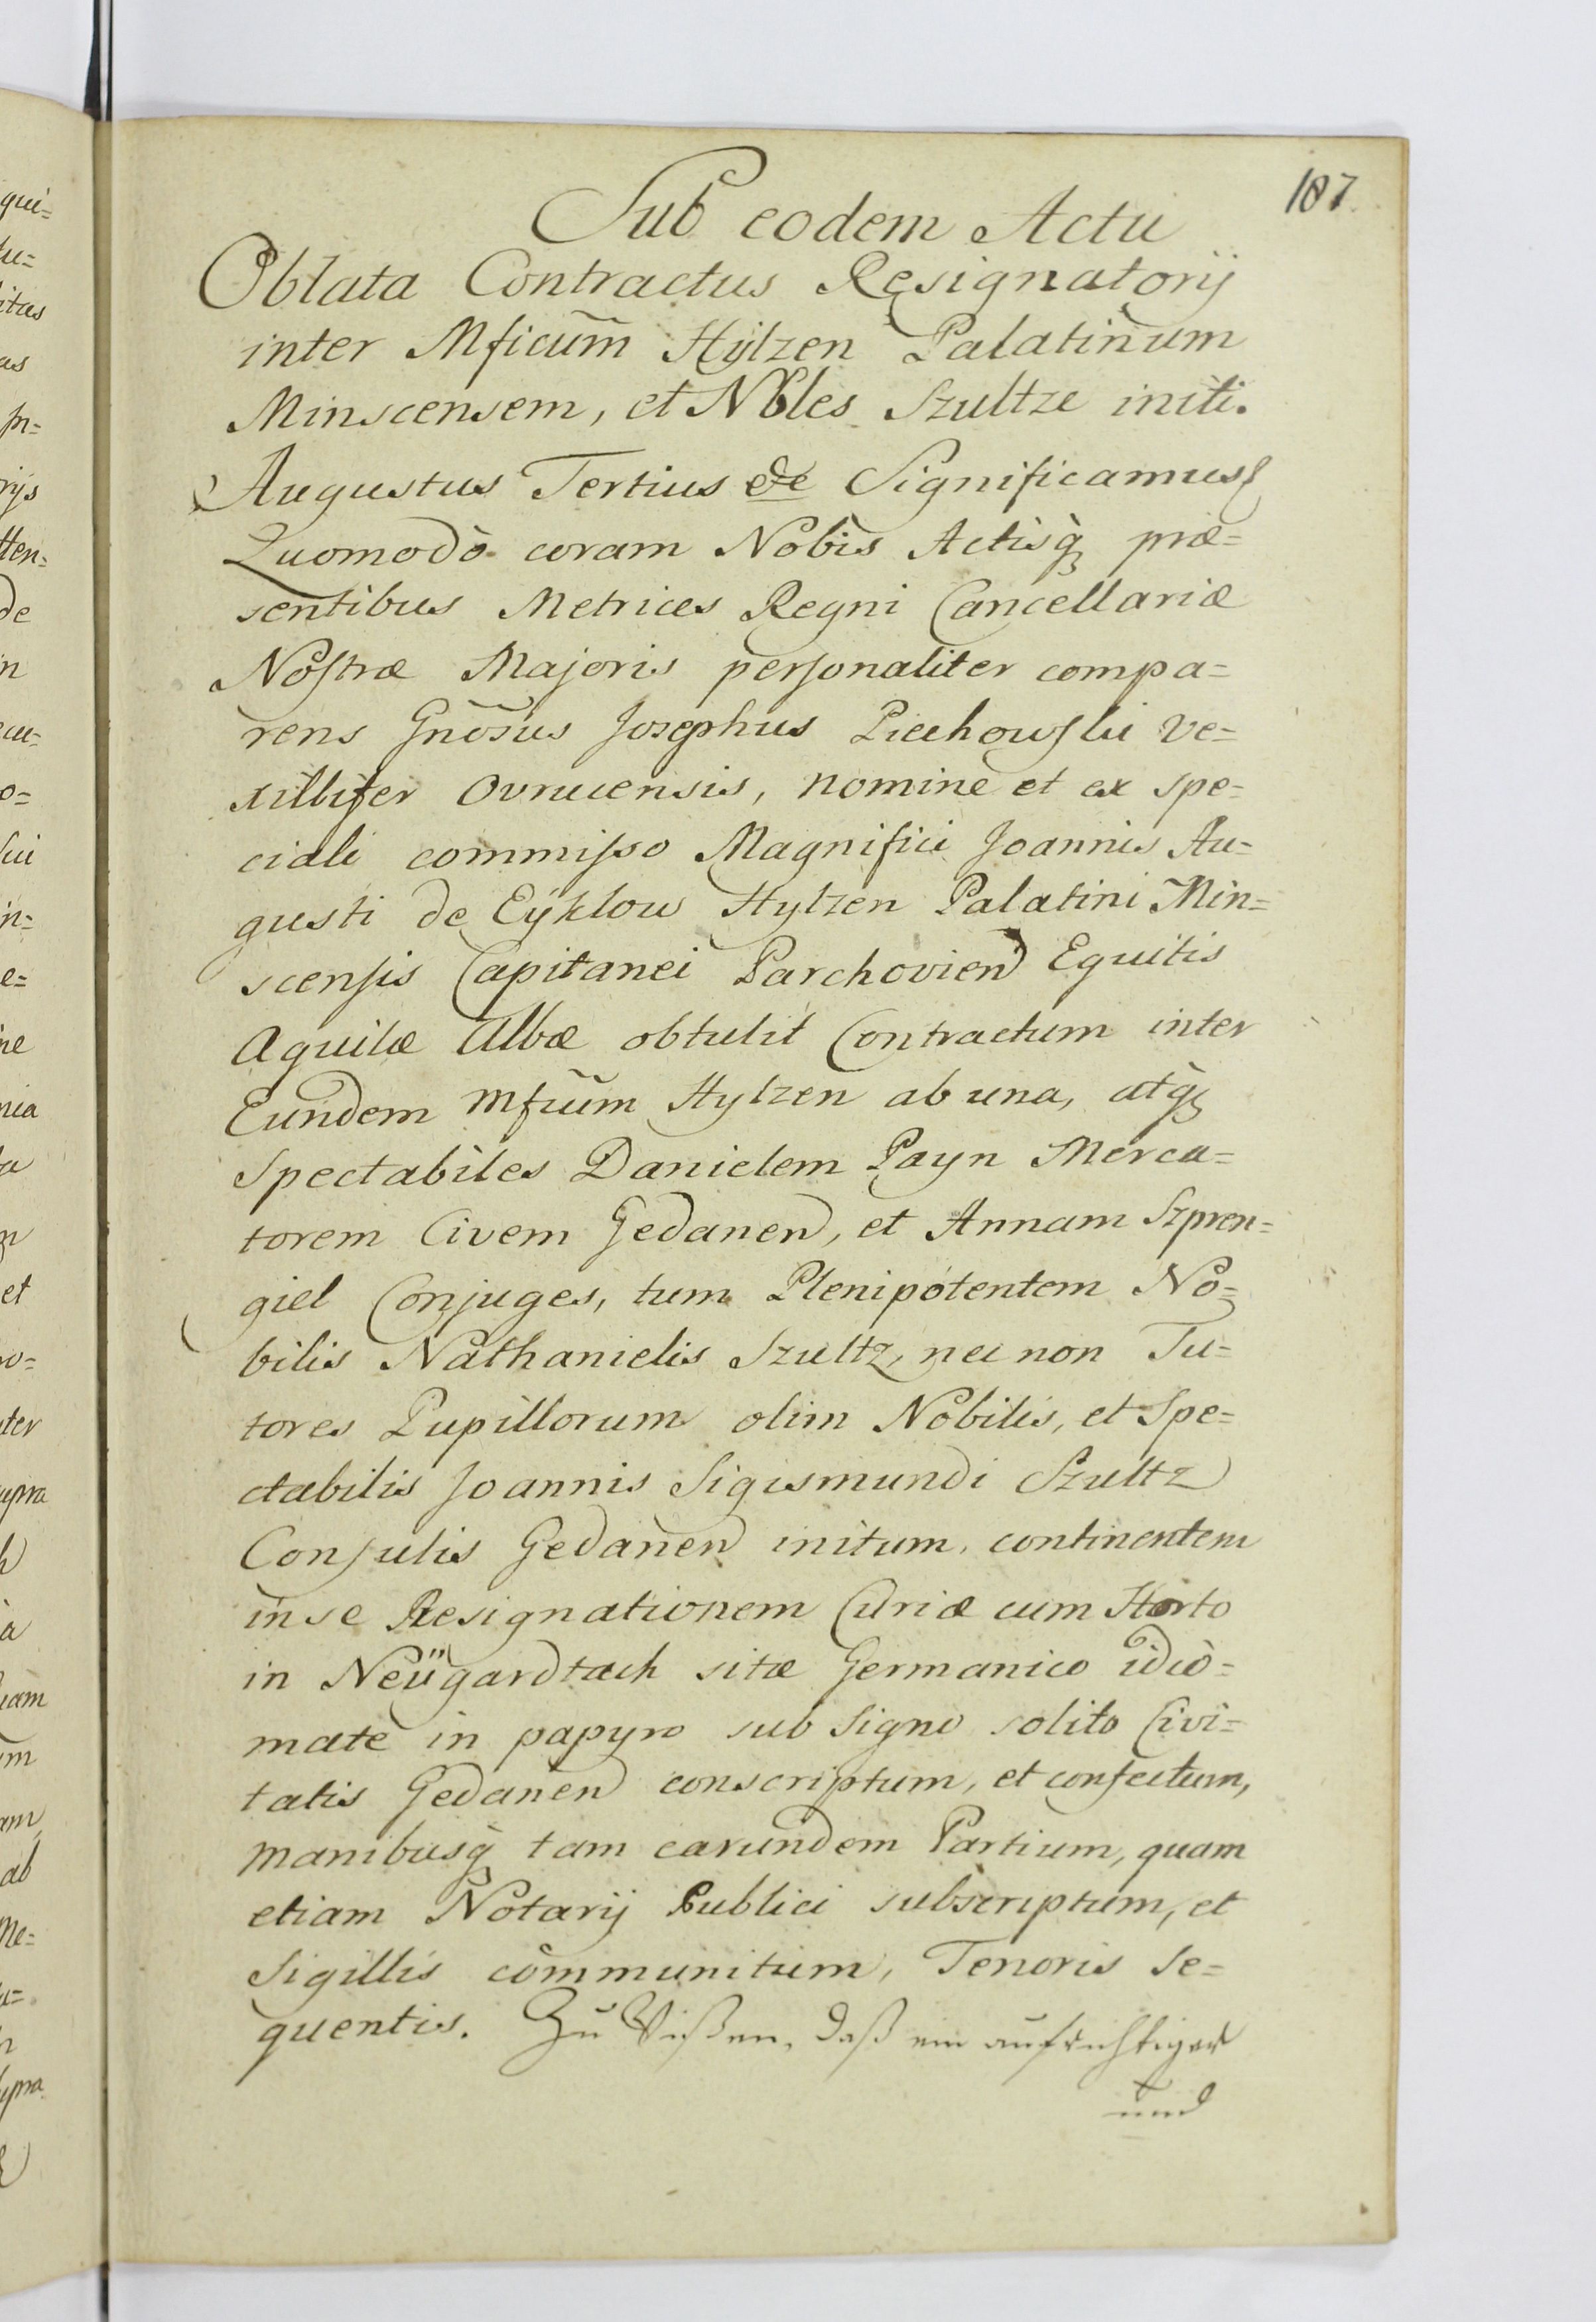 187
Sub eodem Actu
Oblata Contractus Resignatorij
inter Mficũm Hÿlzen Palatinum
Minscensem, et Nbles Szultze initi.
Augustus Tertius &c Significamus
Quomodò coram Nobis Actisq̀ præ=
sentibus Metrices Regni Cancellariæ
Nostræ Majoris personaliter compa=
rens Gnõsus Josephus Piechowski Ve=
xillifer Ovrucensis, nomine et ex spe=
ciali commisso Magnifici Joannis Au=
gusti de Eÿklow Hylzen Palatini Min=
scensis Capitanei Parchovien Equitis
Aquilæ Albæ obtulit Contractum inter
Eundem Mfcũm Hylzen ab una, atq̀
Spectabiles Danielem Payn Merca=
torem Civem Gedanen, et Annam Szpren=
giel Conjuges, tum Plenipotentem No=
bilis Nathanielis Szultz, nec non Tu=
tores Pupillorum olim Nobilis, et Spe=
ctabilis Joannis Sigismundi Szultz
Consulis Gedanen initum, continentem
in se Resignationem Curiæ cum Horto
in Neügardtach sitæ Germanico idio=
mate in papyro sub Signo solito Civi=
tatis Gedanen conscriptum, et confectum,
manibusq̀ tam earundem Partium, quam
etiam Notarij Publici subscriptum, et
Sigillis communitum, Tenoris Se=
quentis. Zu Wißen, daß ein aufrichtiger
und
qui=
tu=
itas
as
pr=
rijs
tten=
de
in
cu=
o=
sui
in=
e=
ne
nia
ta
et
ro=
nter
upra
à
uam
um
am,
ab
Me=
upra